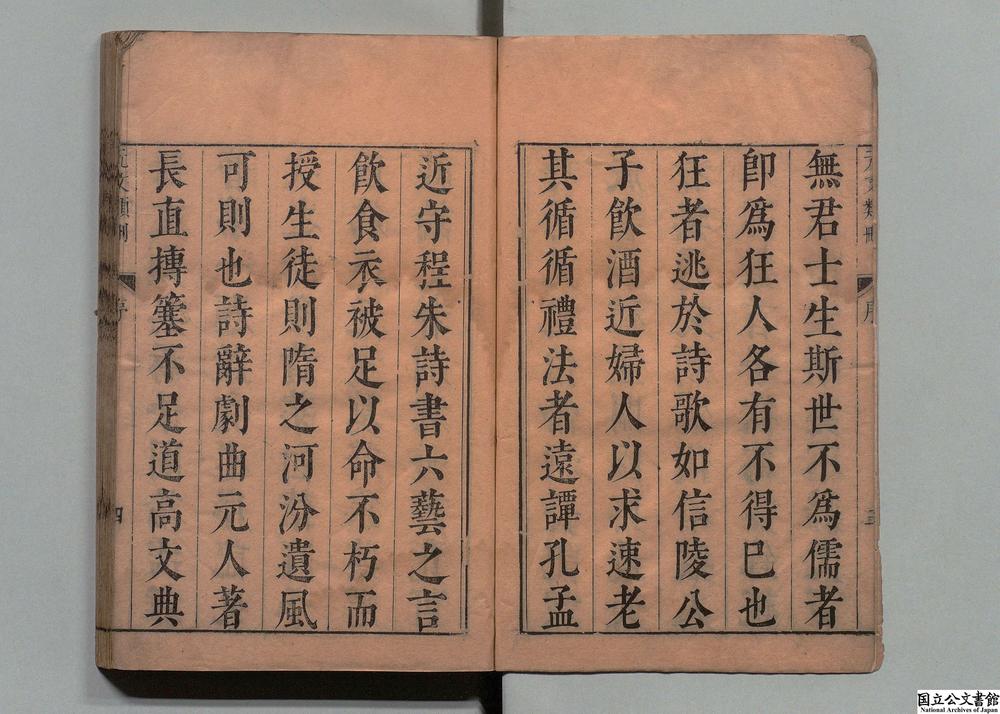 無君士生斯世不爲儒者
卽爲狂人各有不得巳也
狂者逃於詩歌如信陵公
子飮酒近婦人以求速老
其循循禮法者遠譚孔孟
近守程朱詩書六藝之言
飮食衣被足以命不朽而
授生徒則隋之河汾遺風
可則也詩辭劇曲元人著
長直摶簺不足道高文典
序
四
国立公文書館
National Archives of Japan